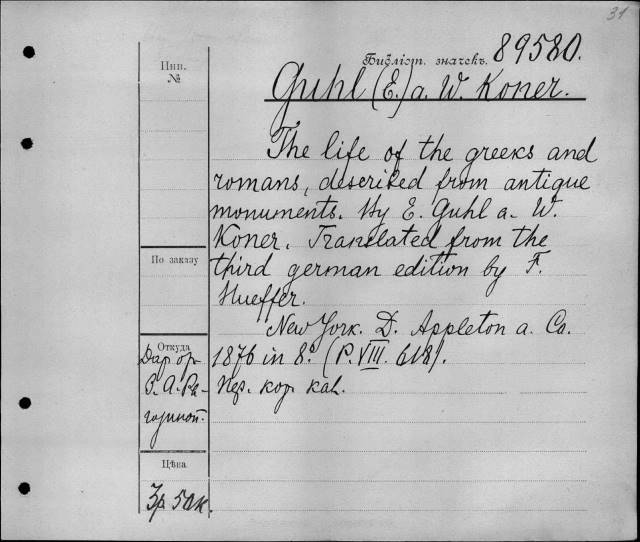 31
Библіот. значекъ. 89580.
Инв.
№
Guhl (E.) a. W. Koner.
The life of the greeks and
romans, described from antique
monuments. By E. Guhl a. W.
Koner. Translated from the
По заказу
third german edition by F.
Hueffer.
New York. D. Appleton a. Co.
Откуда
1876 in 8°. (P. VIII. 618).
Даръ
З. А. Ра-
гозиной.
кор. каl.
Цѣна
3р. 50к.